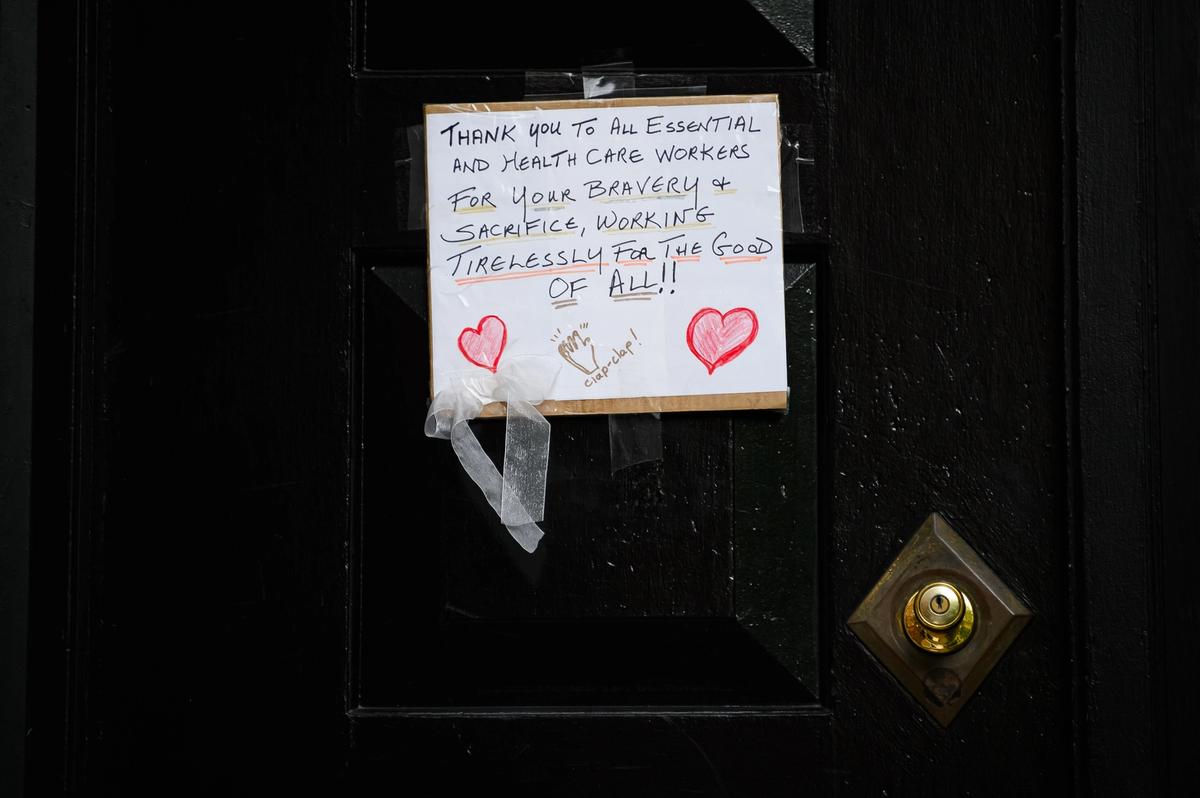 THANK YOU TO ALL ESSENTIAL
AND HEALTH CARE WORKERS
FOR YOUR BRAVERY &
SACRIFICE, WORKING
TIRELESSLY FOR THE GOOD
OF ALL!!
clap-clap!